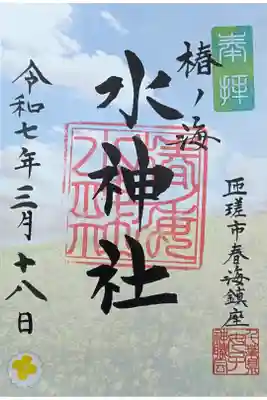 奉拝
椿ノ海
水神社
令和七年三月十八日
匝瑳市春海鎮座